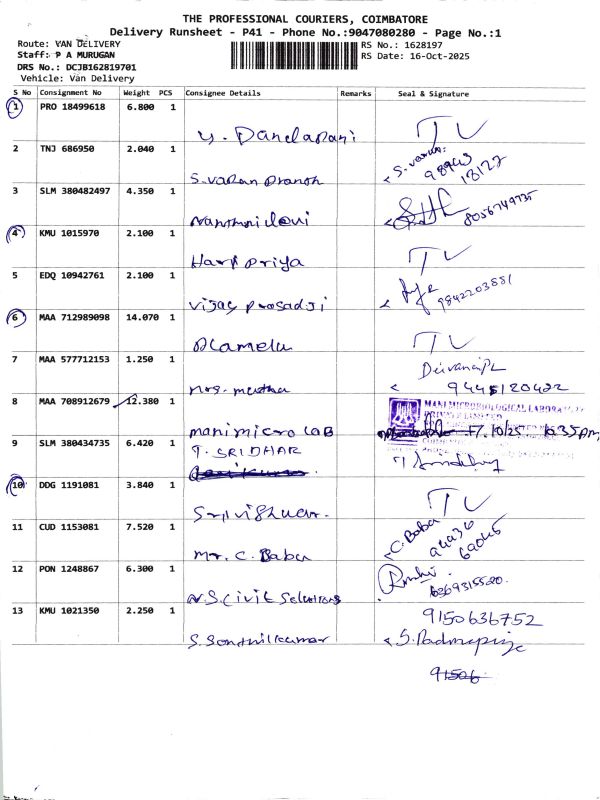 THE PROFESSIONAL COURIERS, COIMBATORE
Delivery Runsheet - P41 - Phone No.:9047080280 - Page No.:1
Route: VAN DELIVERY
Staff: P A MURUGAN
DRS No.: DCJB162819701
Vehicle: Van Delivery
RS No.: 1628197
RS Date: 16-Oct-2025
S No Consignment No Weight PCS Consignee Details Remarks Seal & Signature
1 PRO 18499618 6.800 1
2 TNJ 686950 2.040 1
S. varan 98943 18127
3 SLM 380482497 4.350 1
8056749735
4 KMU 1015970 2.100 1 Hari Priya
5 EDQ 10942761 2.100 1 Vijay Prosadji
9842203881
6 MAA 712989098 14.070 1 Alamelu
7 MAA 577712153 1.250 1 mrs. mutha
9445120422
8 MAA 708912679 12.380 1 manimicro LAB
MANI MICROBIOLOGICAL LABORATORY
PRIVATE LIMITED
17.10/25 6.35pm
9 SLM 380434735 6.420 1 T. SRIDHAR
10 DDG 1191081 3.840 1
11 CUD 1153081 7.520 1 Mr. C. Babu
C. Babu
12 PON 1248867 6.300 1 N.S. Civil Solutions
13 KMU 1021350 2.250 1 S. Senthilkumar
9150636752
91506